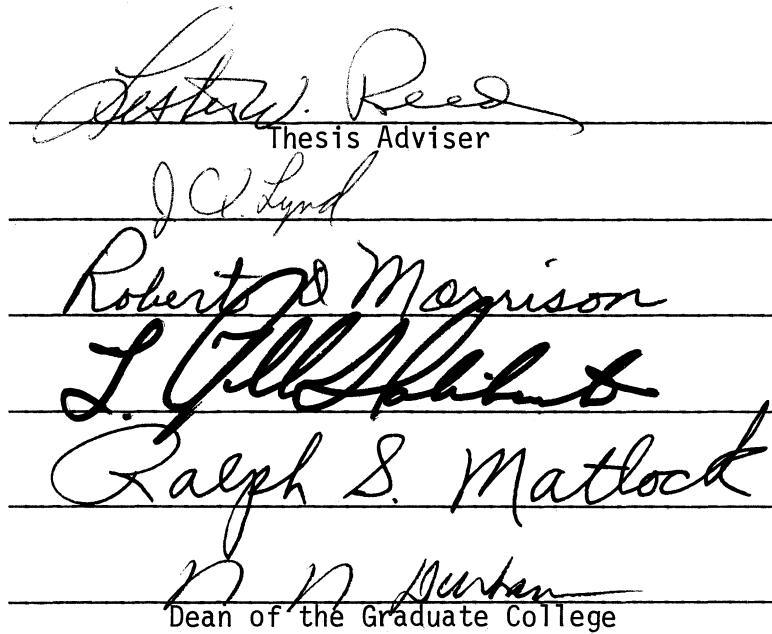 Lester W. Reed
Thesis Adviser
J Q. Lynd
Robert D Morrison
L.
Ralph S. Matlock
N N Durham
Dean of the Graduate College